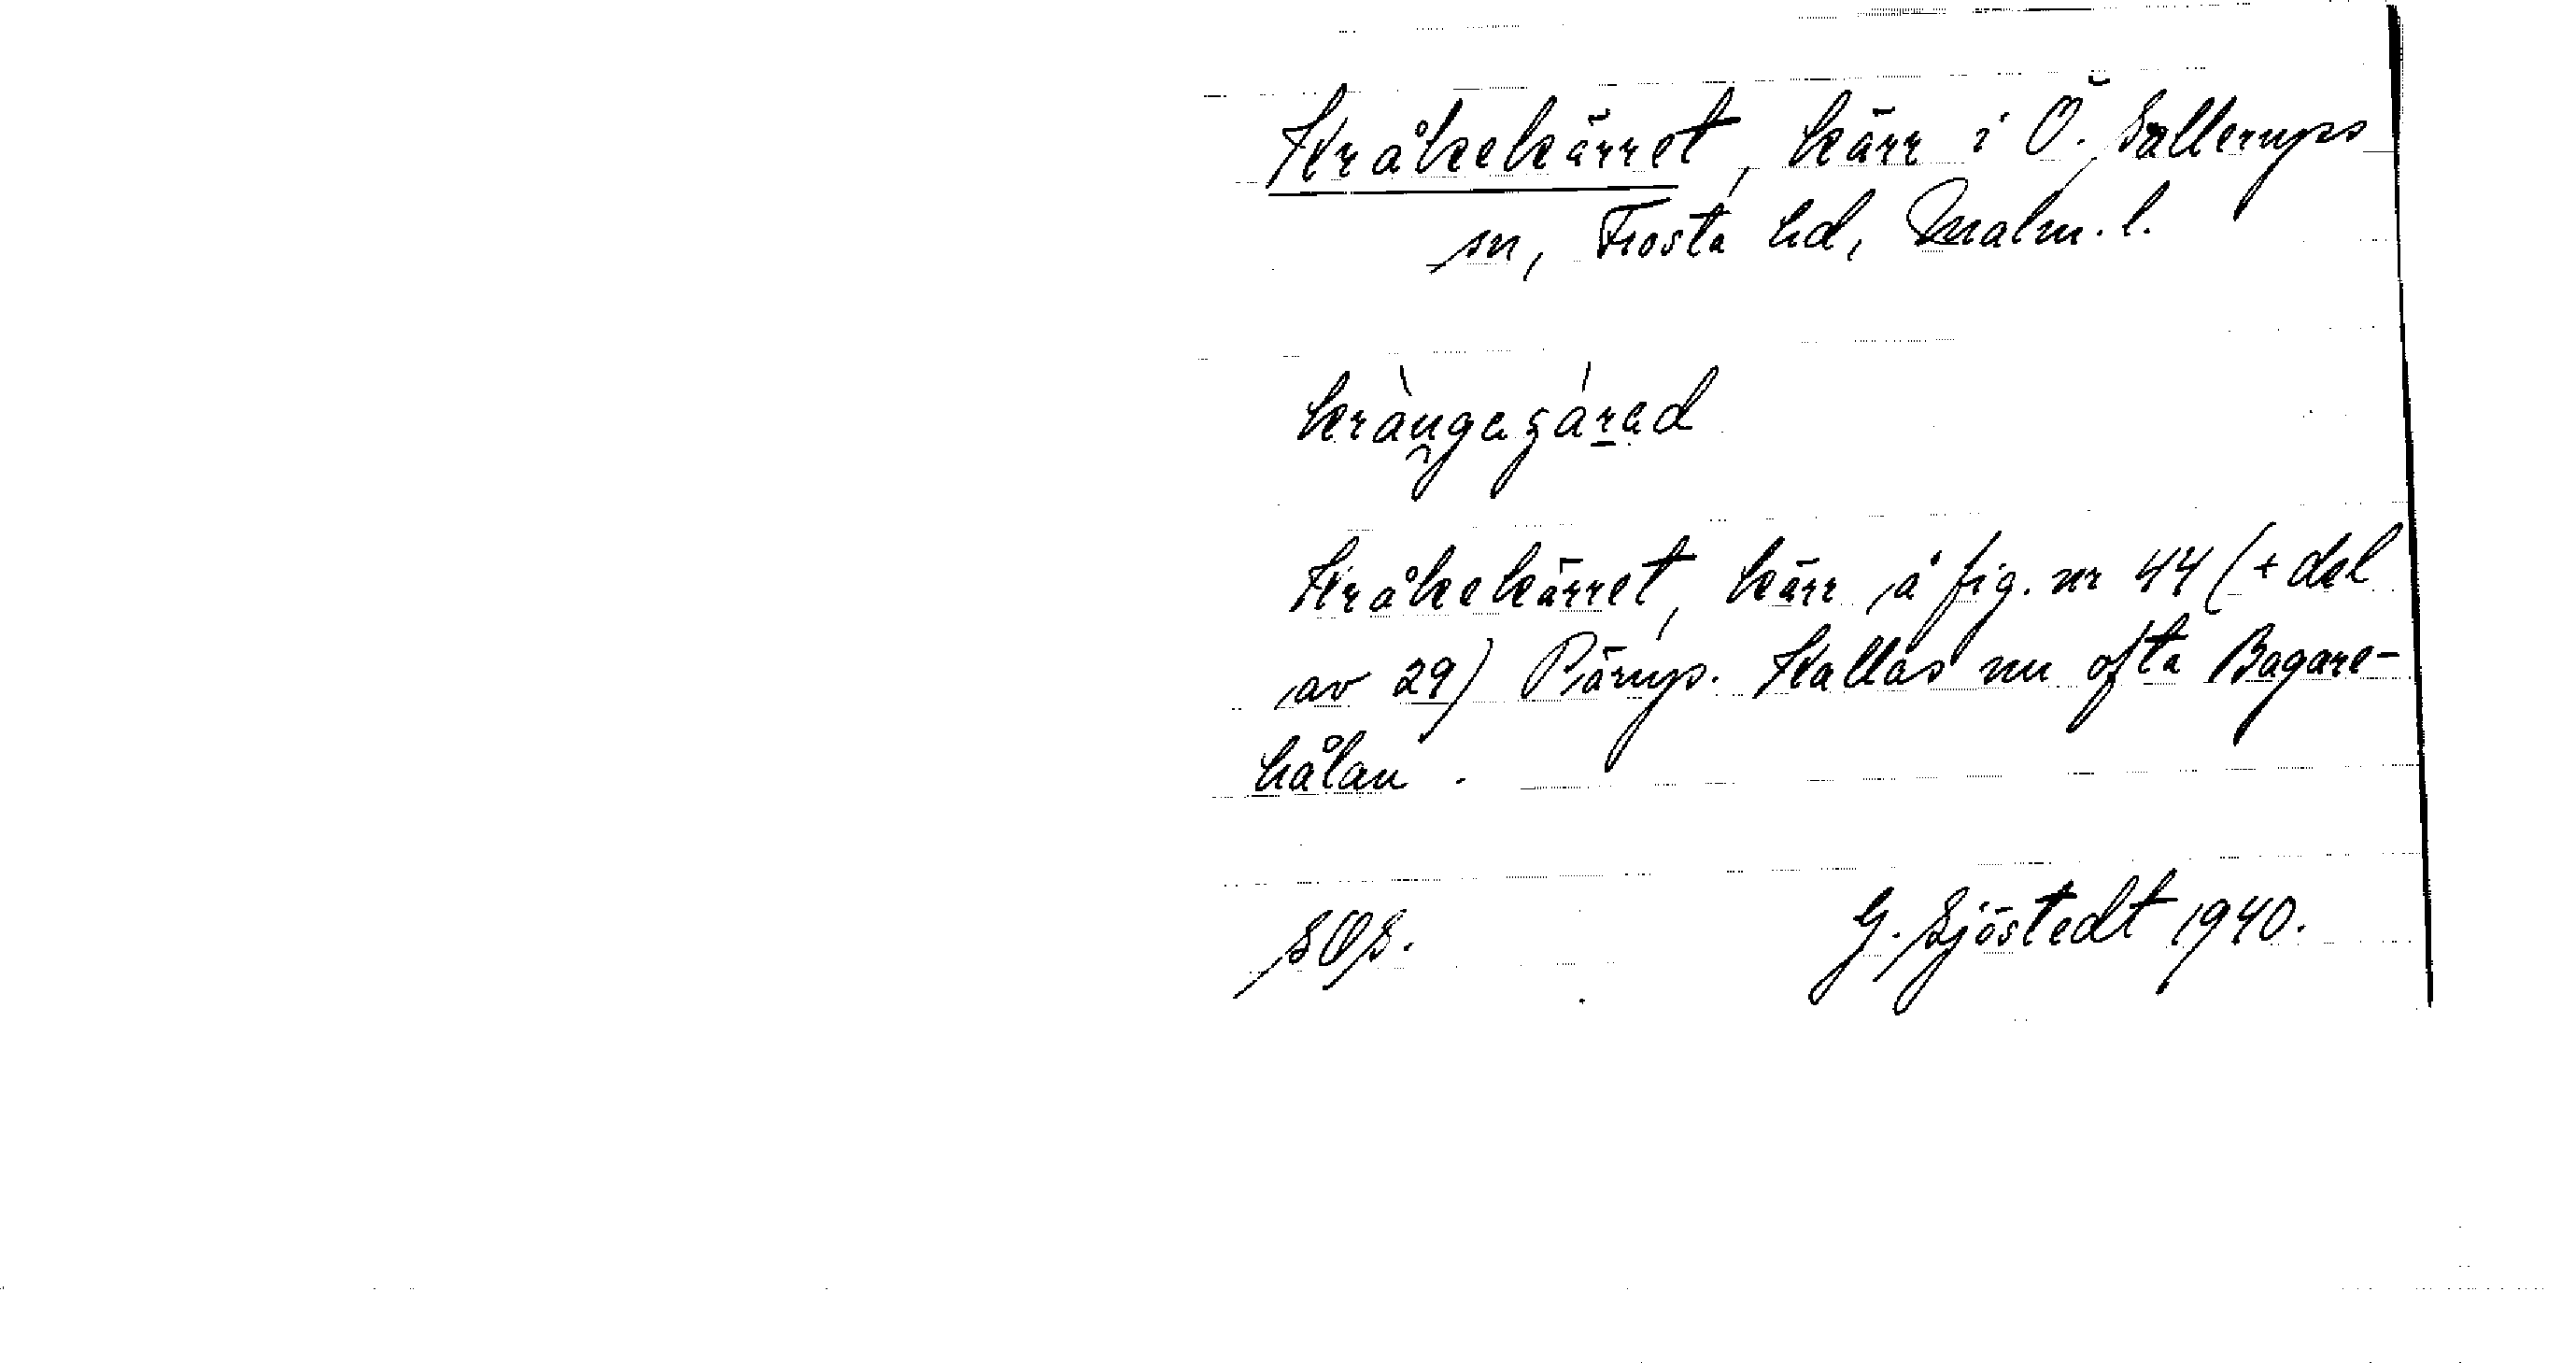 Kråkekärret, kärr i Ö. Sallerups
sn, Frosta hd, Malm. l.
Kråkekärret, kärr å fig. nr 44 (+ del
av 29) Pärup. Kallas nu ofta Bagare-
hålan.
SOS. G. Sjöstedt 1940.